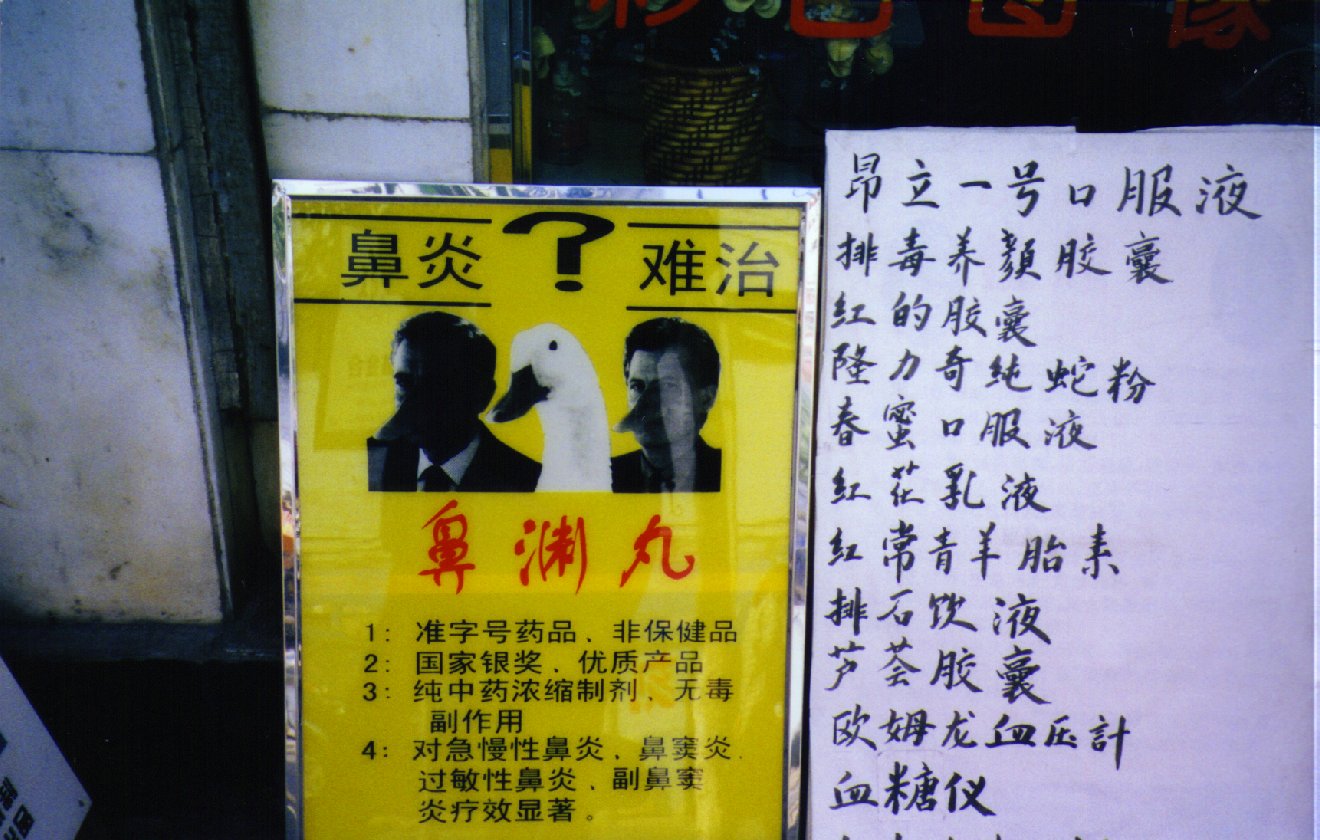 彩色图像
鼻炎?难治
鼻渊丸
1: 准字号药品、非保健品
2: 国家银奖、优质产品
3: 纯中药浓缩制剂、无毒
副作用
4: 对急慢性鼻炎、鼻窦炎、
过敏性鼻炎、副鼻窦
炎疗效显著。
昂立一号口服液
排毒养顔胶囊
红的胶囊
隆力奇纯蛇粉
春蜜口服液
红花乳液
红常青羊胎素
排石饮液
芦荟胶囊
欧姆龙血压計
血糖仪